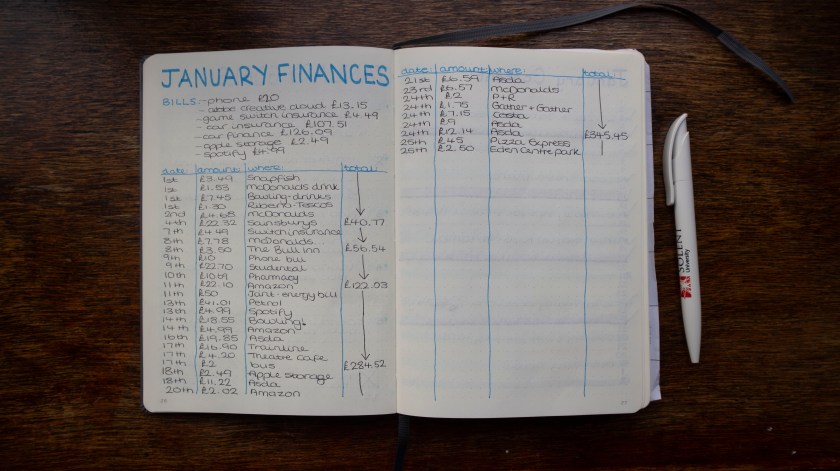 JANUARY FINANCES
BILLS:- phone £20
- adobe creative cloud £13.15
- game switch insurance £4.49
- car insurance £107.51
- car finance £126.09
- apple storage £2.49
- spotify £4.99
date: amount: where: total:
1st £3.49 Snapfish
1st £1.53 mcDonalds drink
1st £7.45 Bowling-drinks
1st £1.30 Ribeno-Tescos
2nd £4.68 mcDonalds
4th £22.32 Sainsburys £40.77
7th £4.49 Switch insurance
8th £7.78 mcDonalds
8th £3.50 The Bull inn £56.54
9th £10 Phone bill
9th £22.70 Studental
10th Pharmacy
11th £22.10 Amazon £122.03
11th £50 Joint-energy bill
13th £41.01 Petrol
13th £4.99 Spotify
14th £18.55 Bowling
14th £4.99 Amazon
16th £19.85 Asda
17th £16.90 Trainline
17th £4.20 Theatre Cafe
17th £2 bus £284.52
18th £2.49 Apple storage
18th £11.22 Asda
20th £2.02 Amazon
date: amount: where: total:
21st £6.59 Asda
23rd £6.57 mcDonalds
24th £2 P+R
24th £1.75 Gather+Gather
24th £7.15 Costa
24th £9 Asda
24th £12.14 Asda £345.45
25th £45 Pizza Express
25th £2.50 Eden Centre park
SOLENT
University